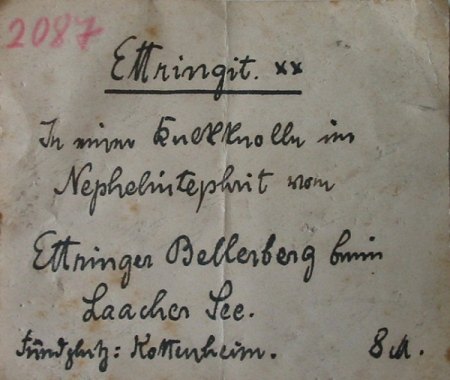 2087
Ettringit. xx
In einer Kalkknolle im
Nephelintephrit vom
Ettringer Bellerberg beim
Laacher See.
Fundplatz: Kottenheim. 8 M.